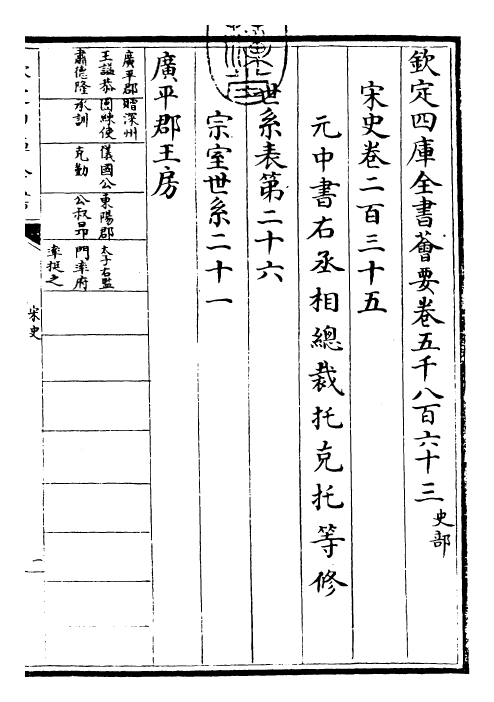 欽定四庫全書薈要卷五千八百六十三史部
宋史卷二百三十五
元中書右丞相總裁托克托等修
世系表第二十六
宗室世系二十一
廣平郡王房
廣平郡
王諡恭
肅德隆
贈深州
團練使
承訓
儀國公
克勤
東陽郡
公叔昂
太子右監
門率府
率挺之
宋史
一